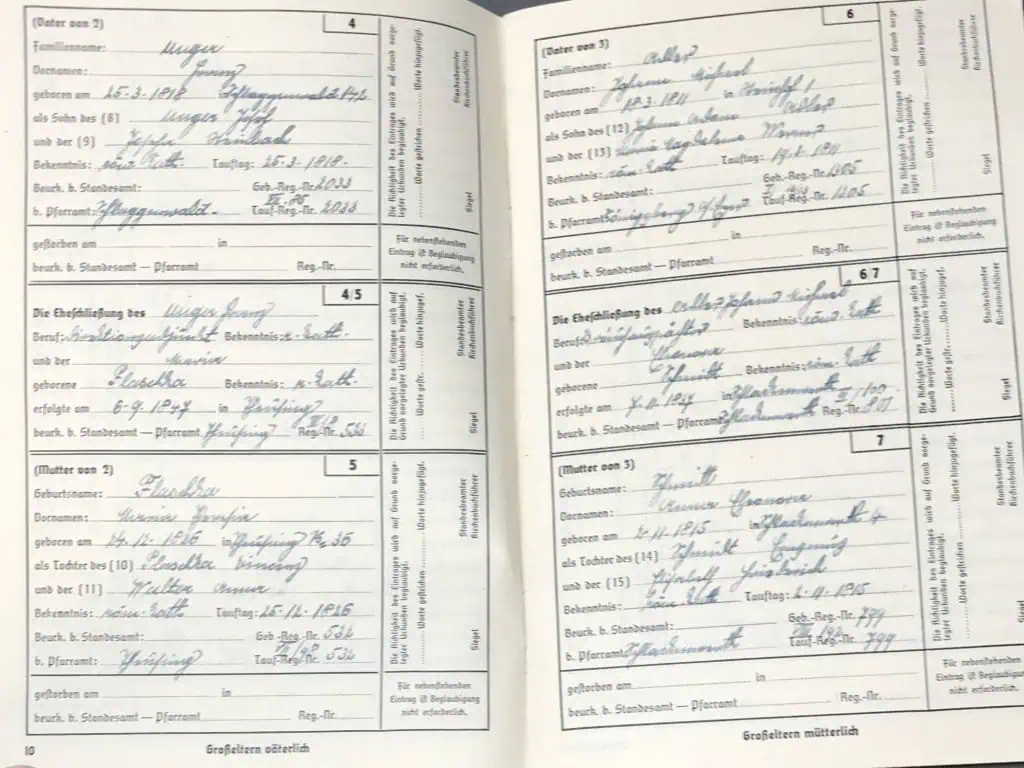 (Vater von 2) 4
Familienname: Unger
Vornamen: Franz
geboren am 25-3-1818 Schlaggenwald 142
als Sohn des (8) Unger Josef
und der (9) Josefa
Bekenntnis: röm. Kath. Tauftag: 25-3-1818.
Beurk. b. Standesamt: Geb.-Reg.-Nr. 2033
b. Pfarramt: Schlaggenwald Tauf-Reg.-Nr. 2033
gestorben am in
beurk. b. Standesamt — Pfarramt Reg.-Nr.
Die Richtigkeit des Eintrages wird auf Grund vorge-
legter Urkunden beglaubigt.
Worte gestrichen Worte hinzugefügt.
Standesbeamter
Kirchenbuchführer
Siegel
Für nebenstehenden
Eintrag ist Beglaubigung
nicht erforderlich.
4/5
Die Eheschließung des Unger Franz
Beruf: Bekenntnis: r. Kath.
und der Maria
geborene Plaschka Bekenntnis: r. Kath.
erfolgte am 6-9-1847 in
beurk. b. Standesamt — Pfarramt Reg.-Nr. 532
Die Richtigkeit des Eintrages wird auf
Grund vorgelegter Urkunden beglaubigt.
Worte gestr. Worte hinzugef.
Standesbeamter
Kirchenbuchführer
Siegel
(Mutter von 2) 5
Geburtsname: Plaschka
Vornamen: Maria
geboren am 24-12-1826 in No 36
als Tochter des (10) Plaschka Vinzenz
und der (11) Walter Anna
Bekenntnis: röm. Kath. Tauftag: 25-12-1826
Beurk. b. Standesamt: Geb.-Reg.-Nr. 532
b. Pfarramt: Tauf-Reg.-Nr. 532
gestorben am in
beurk. b. Standesamt — Pfarramt Reg.-Nr.
Die Richtigkeit des Eintrages wird auf Grund vorge-
legter Urkunden beglaubigt.
Worte gestrichen Worte hinzugefügt.
Standesbeamter
Kirchenbuchführer
Siegel
Für nebenstehenden
Eintrag ist Beglaubigung
nicht erforderlich.
10 Großeltern väterlich
(Vater von 3) 6
Familienname: Adler
Vornamen: Johann Michael
geboren am 19-3-1811 in
als Sohn des (12) Johann Adam Adler
und der (13) Magdalena
Bekenntnis: röm. Kath. Tauftag: 1811
Beurk. b. Standesamt: Geb.-Reg.-Nr. 1305
b. Pfarramt: Königsberg a/Eger Tauf-Reg.-Nr. 1305
gestorben am in
beurk. b. Standesamt — Pfarramt Reg.-Nr.
Die Richtigkeit des Eintrages wird auf Grund vorge-
legter Urkunden beglaubigt.
Worte gestrichen Worte hinzugefügt.
Standesbeamter
Kirchenbuchführer
Siegel
Für nebenstehenden
Eintrag ist Beglaubigung
nicht erforderlich.
6/7
Die Eheschließung des Adler Johann Michael
Beruf: Bekenntnis: röm. Kath
und der Eleonora
geborene Schmitt Bekenntnis: röm. Kath
erfolgte am in Schlackenwerth
beurk. b. Standesamt — Pfarramt Schlackenwerth Reg.-Nr. 801
Die Richtigkeit des Eintrages wird auf
Grund vorgelegter Urkunden beglaubigt.
Worte gestr. Worte hinzugef.
Standesbeamter
Kirchenbuchführer
Siegel
(Mutter von 3) 7
Geburtsname: Schmitt
Vornamen: Anna Eleonora
geboren am 2-11-1815 in Schlackenwerth 4
als Tochter des (14) Schmitt
und der (15) Elisabeth
Bekenntnis: röm. Kath Tauftag: 2-11-1815
Beurk. b. Standesamt: Geb.-Reg.-Nr. 799
b. Pfarramt: Schlackenwerth Tauf-Reg.-Nr. 799
gestorben am in
beurk. b. Standesamt — Pfarramt Reg.-Nr.
Die Richtigkeit des Eintrages wird auf Grund vorge-
legter Urkunden beglaubigt.
Worte gestrichen Worte hinzugefügt.
Standesbeamter
Kirchenbuchführer
Siegel
Für nebenstehenden
Eintrag ist Beglaubigung
nicht erforderlich.
Großeltern mütterlich